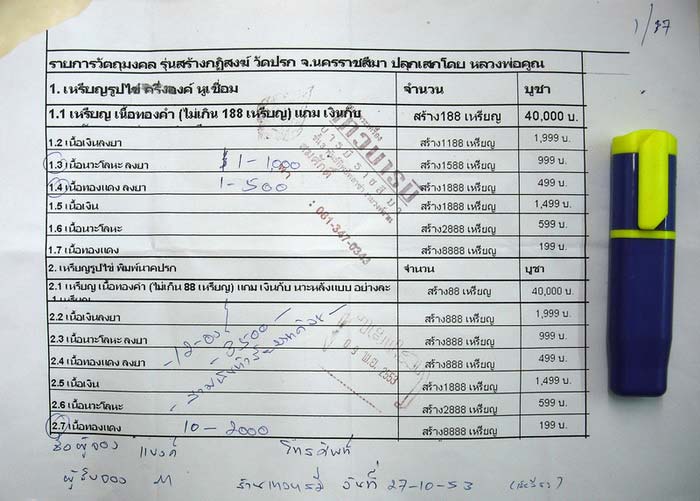 1/87
รายการวัตถุมงคล รุ่นสร้างกุฏิสงฆ์ วัดปรก จ.นครราชสีมา ปลุกเสกโดย หลวงพ่อคูณ
1. เหรียญรูปไข่ ครึ่งองค์ หูเชื่อม จำนวน บูชา
1.1 เหรียญ เนื้อทองคำ (ไม่เกิน 188 เหรียญ) แถม เงินกับ สร้าง188 เหรียญ 40,000 บ.
1.2 เนื้อเงินลงยา สร้าง1188 เหรียญ 1,999 บ.
1.3 เนื้อนวะโลหะ ลงยา 1-1000 สร้าง1588 เหรียญ 999 บ.
1.4 เนื้อทองแดง ลงยา 1-500 สร้าง1888 เหรียญ 499 บ.
1.5 เนื้อเงิน สร้าง1888 เหรียญ 1,499 บ.
1.6 เนื้อนวะโลหะ สร้าง2888 เหรียญ 599 บ.
1.7 เนื้อทองแดง สร้าง8888 เหรียญ 199 บ.
: 081-347-0343
2. เหรียญรูปไข่ พิมพ์นาคปรก จำนวน บูชา
2.1 เหรียญ เนื้อทองคำ (ไม่เกิน 88 เหรียญ) แถม เงินกับ นวะหลังแบบ อย่างละ สร้าง88 เหรียญ 40,000 บ.
2.2 เนื้อเงินลงยา สร้าง888 เหรียญ 1,999 บ.
2.3 เนื้อนวะโลหะ ลงยา 3500 สร้าง888 เหรียญ 999 บ.
2.4 เนื้อทองแดง ลงยา สร้าง888 เหรียญ 499 บ.
03 พ.ย. 2553
2.5 เนื้อเงิน สร้าง1888 เหรียญ 1,499 บ.
2.6 เนื้อนวะโลหะ สร้าง2888 เหรียญ 599 บ.
2.7 เนื้อทองแดง 10-2000 สร้าง8888 เหรียญ 199 บ.
ชื่อผู้จอง แบงค์ โทรศัพท์
ผู้รับจอง M ร้าน วันที่ 27-10-53